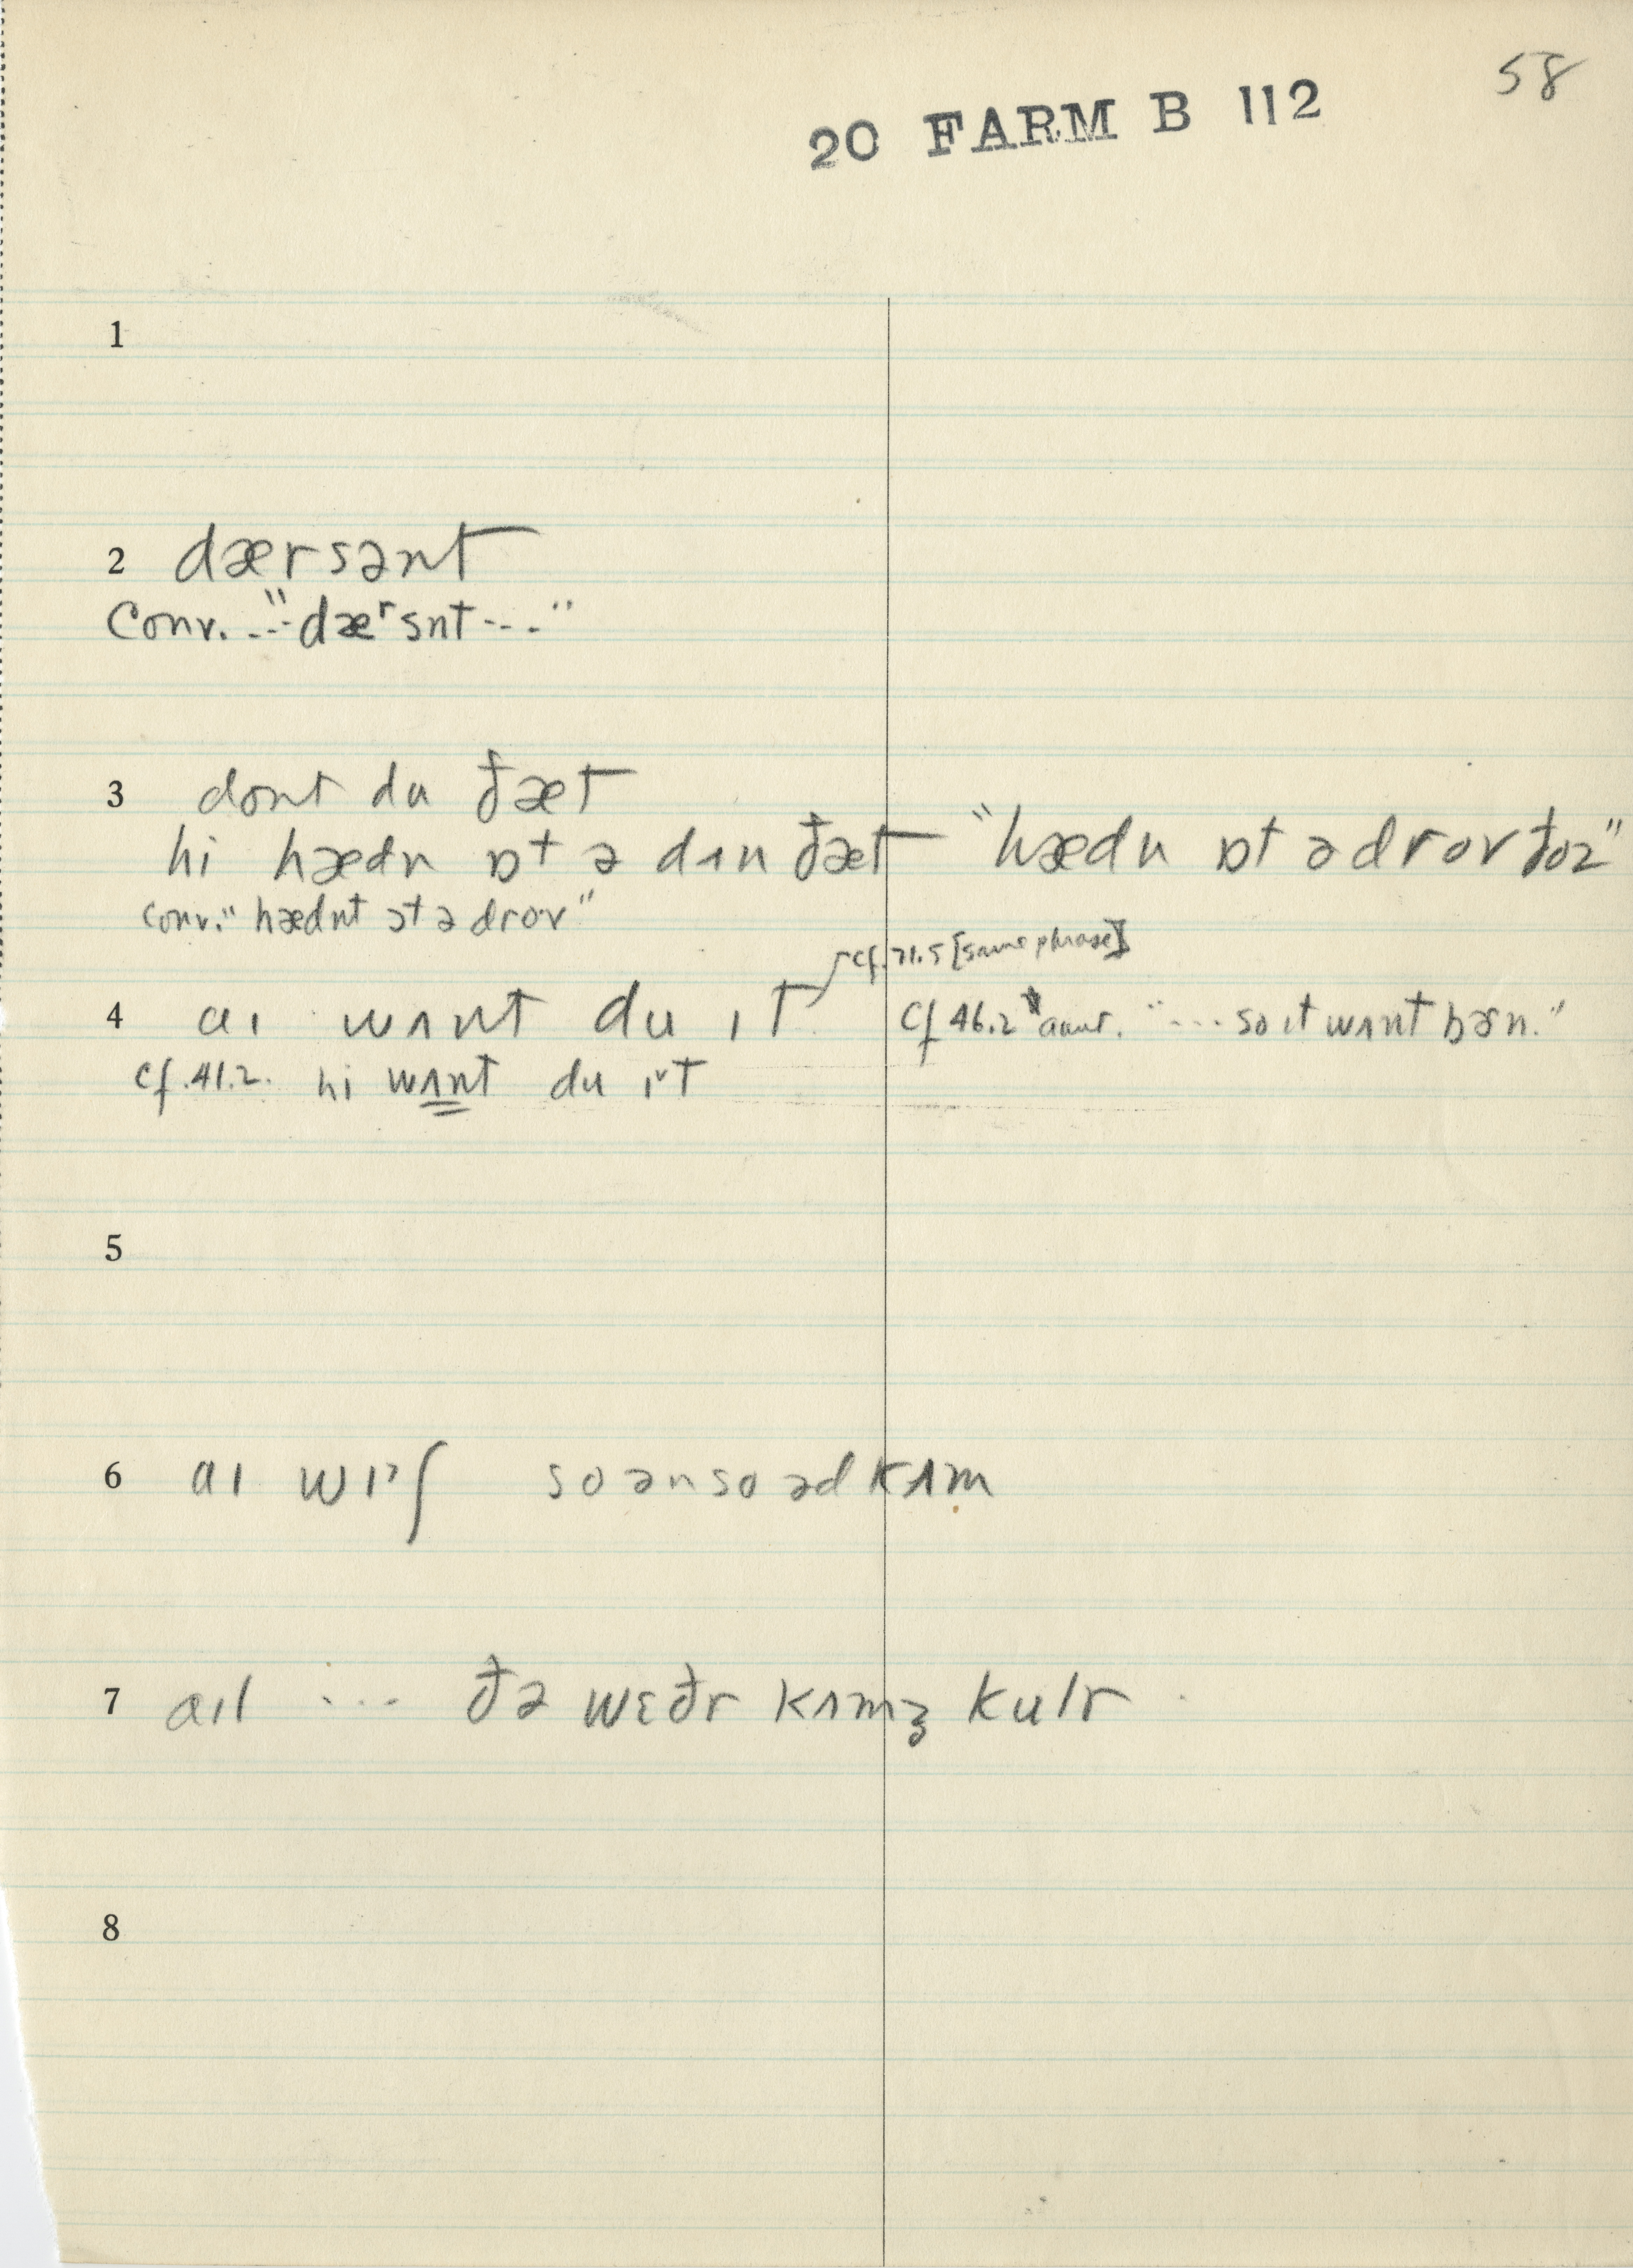 58
20 FARM B 112
1
2 dærsənt
Conv. ..."dæʳsnt---"
3 dont du ðæt
hi hædn ɒt ə dʌn ðæt "hædn ɒt ə drov ðoz"
conv. "hædnt ɔt ə drov"
cf. 71.5 [same phrase]
4 aɪ wʌnt du ɪt cf 46.2 "... so ɪt wʌnt bɚn."
cf. 41.2. hi wʌnt du ɪˇt
5
6 aɪ wɪˀʃ soənso əd kʌm
7 aɪl ... ðə wɛðr kʌmʒ kulr
8